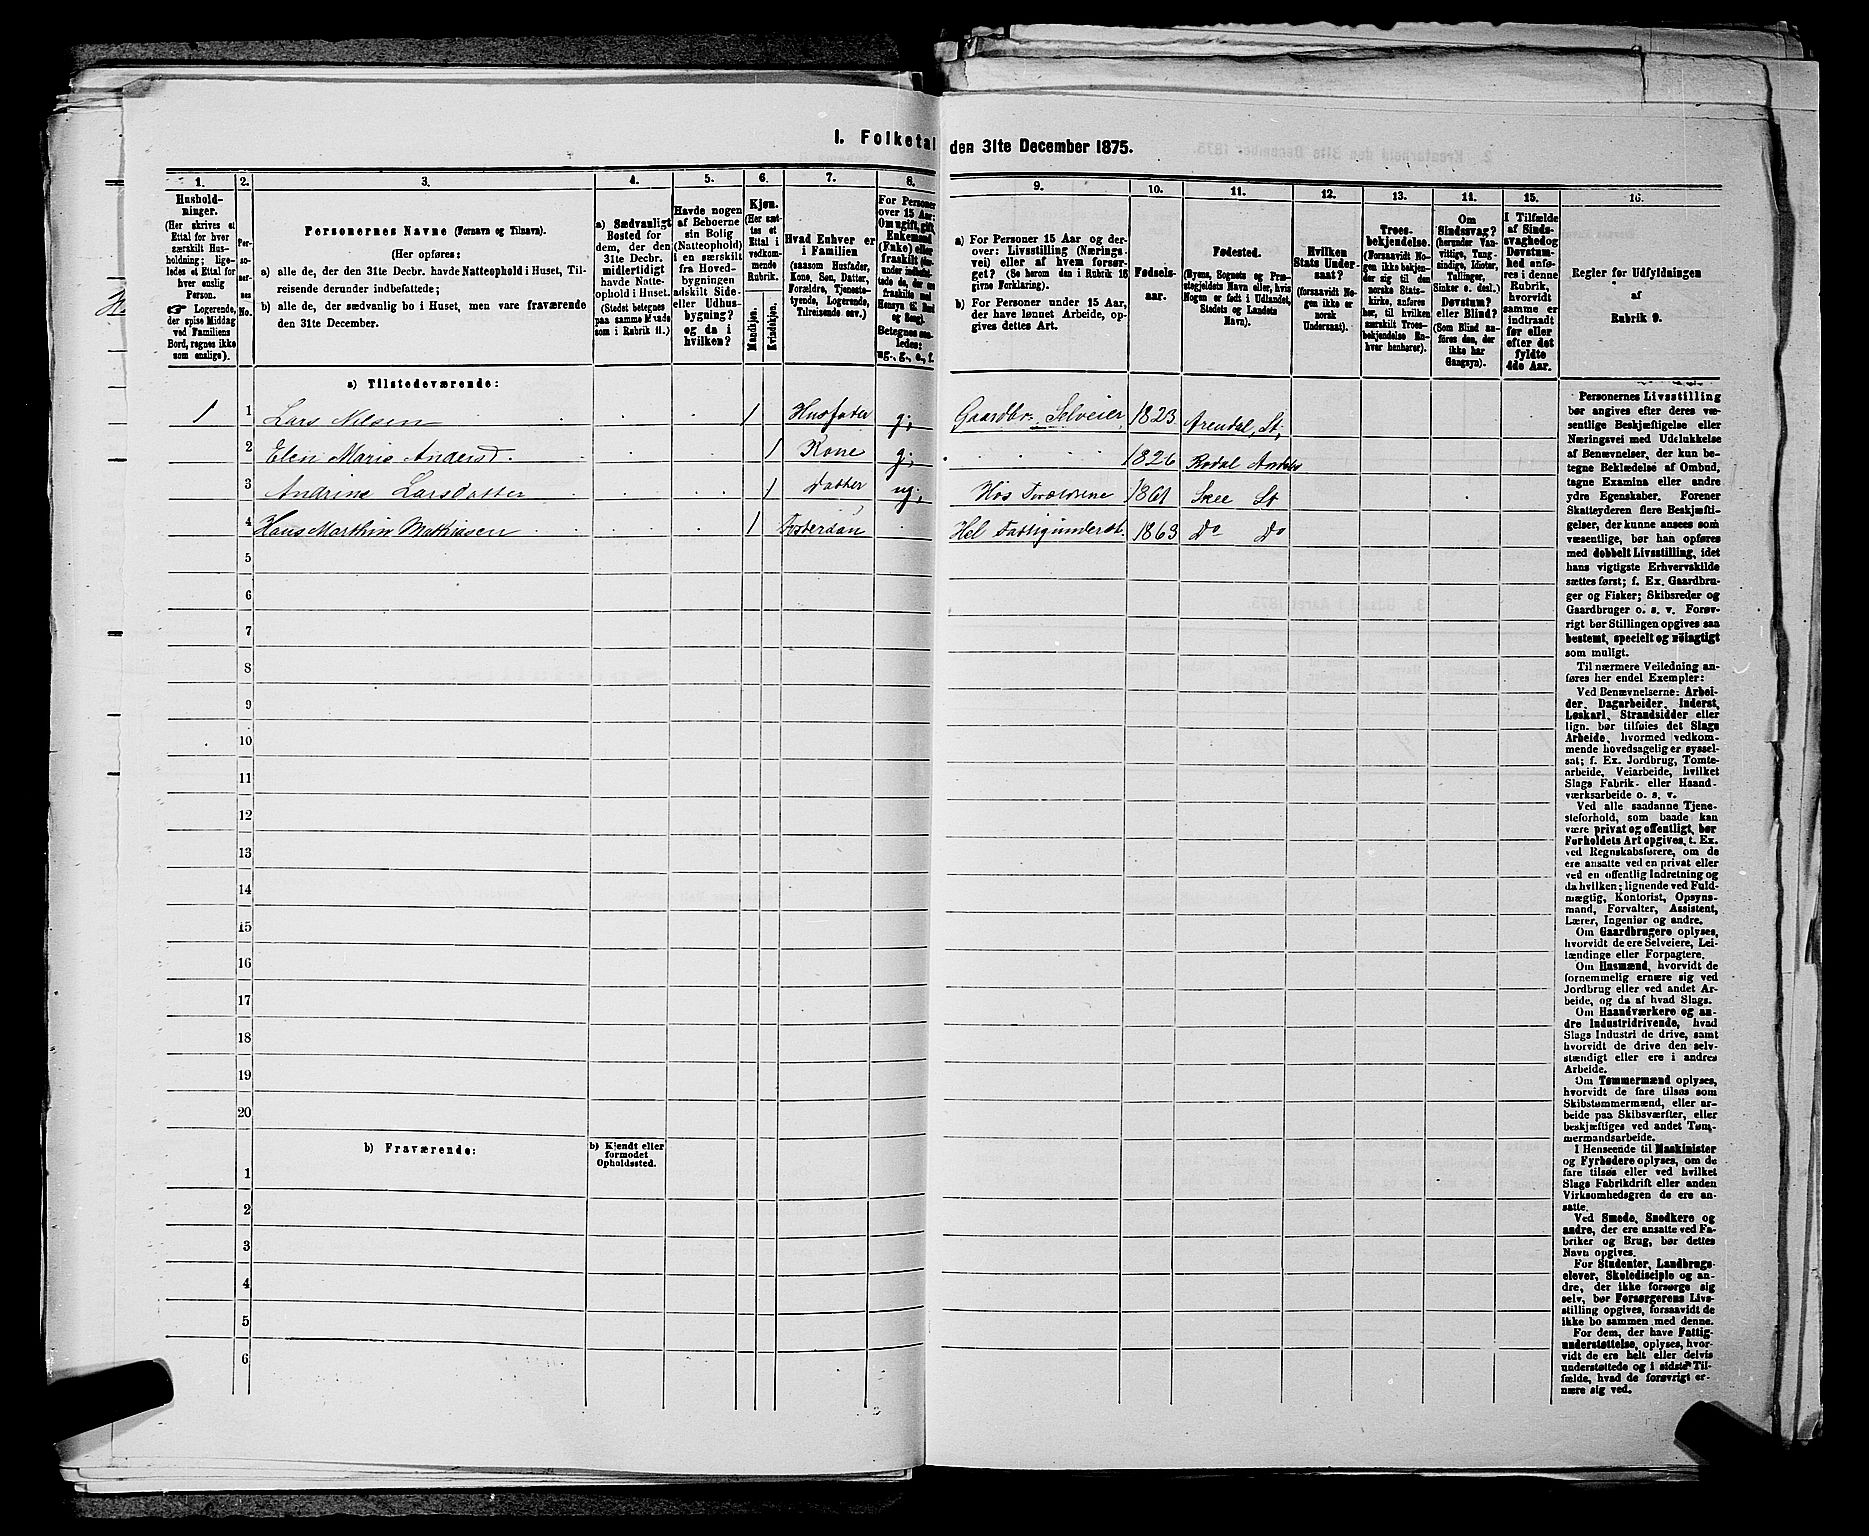 I. Folketal den 31te December 1875.
1. 2. 3. 4. 5. 6. 7. 8. 9. 10. 11. 12. 13. 14. 15. 16.
Husholdninger.
(Her skrives et
Ettal for hver
særskilt Husholdning;
ligeledes et Ettal for
hver enslig
Person.
☞ Logerende,
der spise Middag
ved Familiens
Bord, regnes ikke
som enslige).
Personernes No.
Personernes Navne (Fornavn og Tilnavn).
(Her opføres:
a) alle de, der den 31te Decbr. havde Natteophold i Huset, Tilreisende derunder indbefattede;
b) alle de, der sædvanlig bo i Huset, men vare fraværende
den 31te December.
a) Sædvanligt
Bosted for
dem, der den
31te Decbr.
midlertidigt
havde Natteophold i Huset.
(Stedet betegnes
paa samme Maade
som i Rubrik 11.)
Havde nogen
af Beboerne
sin Bolig
(Natteophold)
i en særskilt
fra Hovedbygningen
adskilt Side-
eller Udhusbygning?
og da i
hvilken?
Kjøn.
(Her sættes et
Ettal i
vedkommende
Rubrik.
Mandkjøn.
Kvindekjøn.
Hvad Enhver er
i Familien
(saasom Husfader,
Kone, Søn, Datter,
Forældre, Tjenestetyende, Logerende,
Tilreisende osv.)
For Personer
over 15 Aar:
Om ugift, gift,
Enkemand
(Enke) eller
fraskilt
Betegnes saaledes:
ug., g., e., f.
a) For Personer 15 Aar og derover: Livsstilling (Næringsvei) eller af hvem forsørget? (Se herom den i Rubrik 16
givne Forklaring).
b) For Personer under 15 Aar,
der have lønnet Arbeide, opgives dettes Art.
Fødselsaar.
Fødested.
(Byens, Sognets og Præstegjeldets Navn eller, hvis
Nogen er født i Udlandet,
Stedets og Landets
Navn).
Hvilken
Stats Undersaat?
(forsaavidt Nogen ikke er
norsk
Undersaat).
Troesbekjendelse.
(Forsaavidt Nogen ikke bekjender sig til den
norske Statskirke, anføres
her, til hvilken
særskilt Troesbekjendelse Enhver henhører).
Om
Sindssvag?
(herunder Vanvittige, Tungsindige, Idioter,
Tullinger,
Sinker o. desl.)
Døvstum?
eller Blind?
(Som Blind anføres den, der
ikke har
Gangsyn).
I Tilfælde
af Sindssvaghed og
Døvstumhed anføres i denne
Rubrik,
hvorvidt
samme er
indtraadt
før eller
efter det
fyldte
4de Aar.
Regler for Udfyldningen
af
Rubrik 9.
a) Tilstedeværende:
1 1 Lars Nilsen 1 Husfader g, Gaardbr. Selveier, 1823 Arendal, St,
2 Elen Marie Andersd. 1 Kone g, 1826
3 Andrine Larsdatter 1 Datter ug, Hos Forældrene 1861 Skee St
4 Hans Marthin Mathiesen 1 Fostersøn Hel Fattigunderst. 1863 Do Do
5
6
7
8
9
10
11
12
13
14
15
16
17
18
19
20
b) Fraværende:
b) Kjendt eller
formodet
Opholdssted.
1
2
3
4
5
6
Personernes Livsstilling
bør angives efter deres væsentlige Beskjæftigelse eller
Næringsvei med Udelukkelse
af Benævnelser, der kun betegne Beklædelse af Ombud,
tagne Examina eller andre
ydre Egenskaber. Forener
Skatteyderen flere Beskjæftigelser, der kunne ansees som
væsentlige, bør han opføres
med dobbelt Livsstilling, idet
hans vigtigste Erhvervskilde
sættes først; f. Ex. Gaardbruger og Fisker; Skibsreder og
Gaardbruger o. s. v. Forøvrigt bør Stillingen opgives saa
bestemt, specielt og nøiagtigt
som muligt.
Til nærmere Veiledning anføres her endel Exempler:
Ved Benævnelserne: Arbeider, Dagarbeider, Inderst,
Løskarl, Strandsidder eller
lign. bør tilføies det Slags
Arbeide, hvormed vedkommende hovedsagelig er sysselsat; f. Ex. Jordbrug, Tomtearbeide, Veiarbeide, hvilket
Slags Fabrik- eller Haandværksarbeide o. s. v.
Ved alle saadanne Tjenesteforhold, som baade kan
være privat og offentligt, bør
Forholdets Art opgives, t. Ex.
ved Regnskabsførere, om de
ere ansatte ved en privat eller
ved en offentlig Indretning og
da hvilken; lignende ved Fuldmægtig, Kontorist, Opsynsmand, Forvalter, Assistent,
Lærer, Ingeniør og andre.
Om Gaardbrugere oplyses,
hvorvidt de ere Selveiere, Leilændinge eller Forpagtere.
Om Husmænd, hvorvidt de
fornemmelig ernære sig ved
Jordbrug eller ved andet Arbeide, og da af hvad Slags.
Om Haandværkere og andre Industridrivende, hvad
Slags Industri de drive, samt
hvorvidt de drive den selvstændigt eller ere i andres
Arbeide.
Om Tømmermænd oplyses,
hvorvidt de fare tilsøs som
Skibstømmermænd, eller arbeide paa Skibsværfter, eller
beskjæftiges ved andet Tømmermandsarbeide.
I Henseende til Maskinister
og Fyrbødere oplyses, om de
fare tilsøs eller ved hvilket
Slags Fabrikdrift eller anden
Virksomhedsgren de ere ansatte.
Ved Smede, Snedkere og
andre, der ere ansatte ved Fabriker og Brug, bør dettes
Navn opgives.
For Studenter, Landbrugselever, Skoledisciple og andre, der ikke forsørge sig
selv, bør Forsørgerens Livsstilling opgives, forsaavidt de
ikke bo sammen med denne.
For dem, der have Fattigunderstøttelse, oplyses, hvorvidt de ere helt eller delvis
understøttede og i sidste Tilfælde, hvad de forøvrigt ernære sig ved.